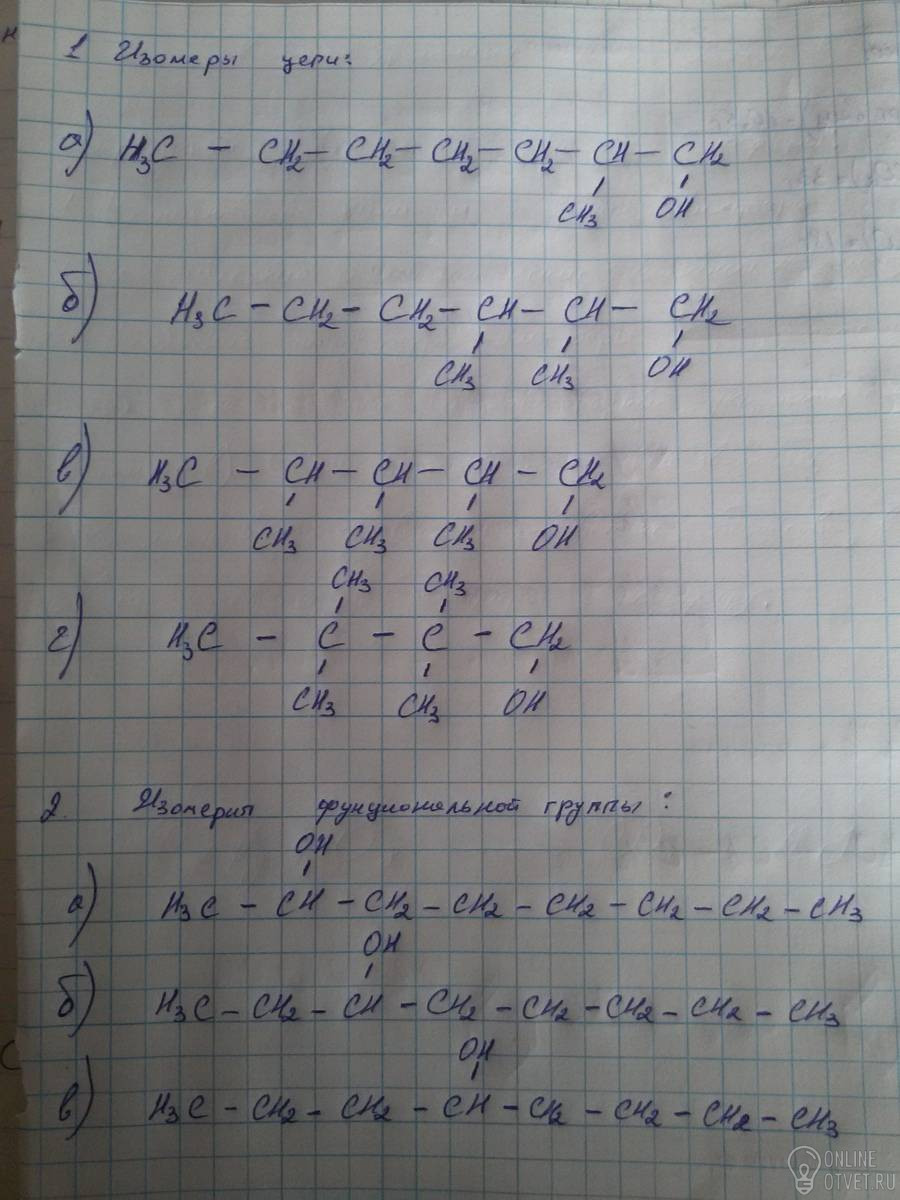 1 Изомеры цепи:
а) H3C – CH2 – CH2 – CH2 – CH2 – CH – CH2
CH3 OH
б) H3C – CH2 – CH2 – CH – CH – CH2
CH3 CH3 OH
в) H3C – CH – CH – CH – CH2
CH3 CH3 CH3 OH
CH3 CH3
г) H3C – C – C – CH2
CH3 CH3 OH
2. Изомерия фунциональной группы:
OH
а) H3C – CH – CH2 – CH2 – CH2 – CH2 – CH2 – CH3
OH
б) H3C – CH2 – CH – CH2 – CH2 – CH2 – CH2 – CH3
OH
в) H3C – CH2 – CH2 – CH – CH2 – CH2 – CH2 – CH3
ONLINE
OTVET.RU